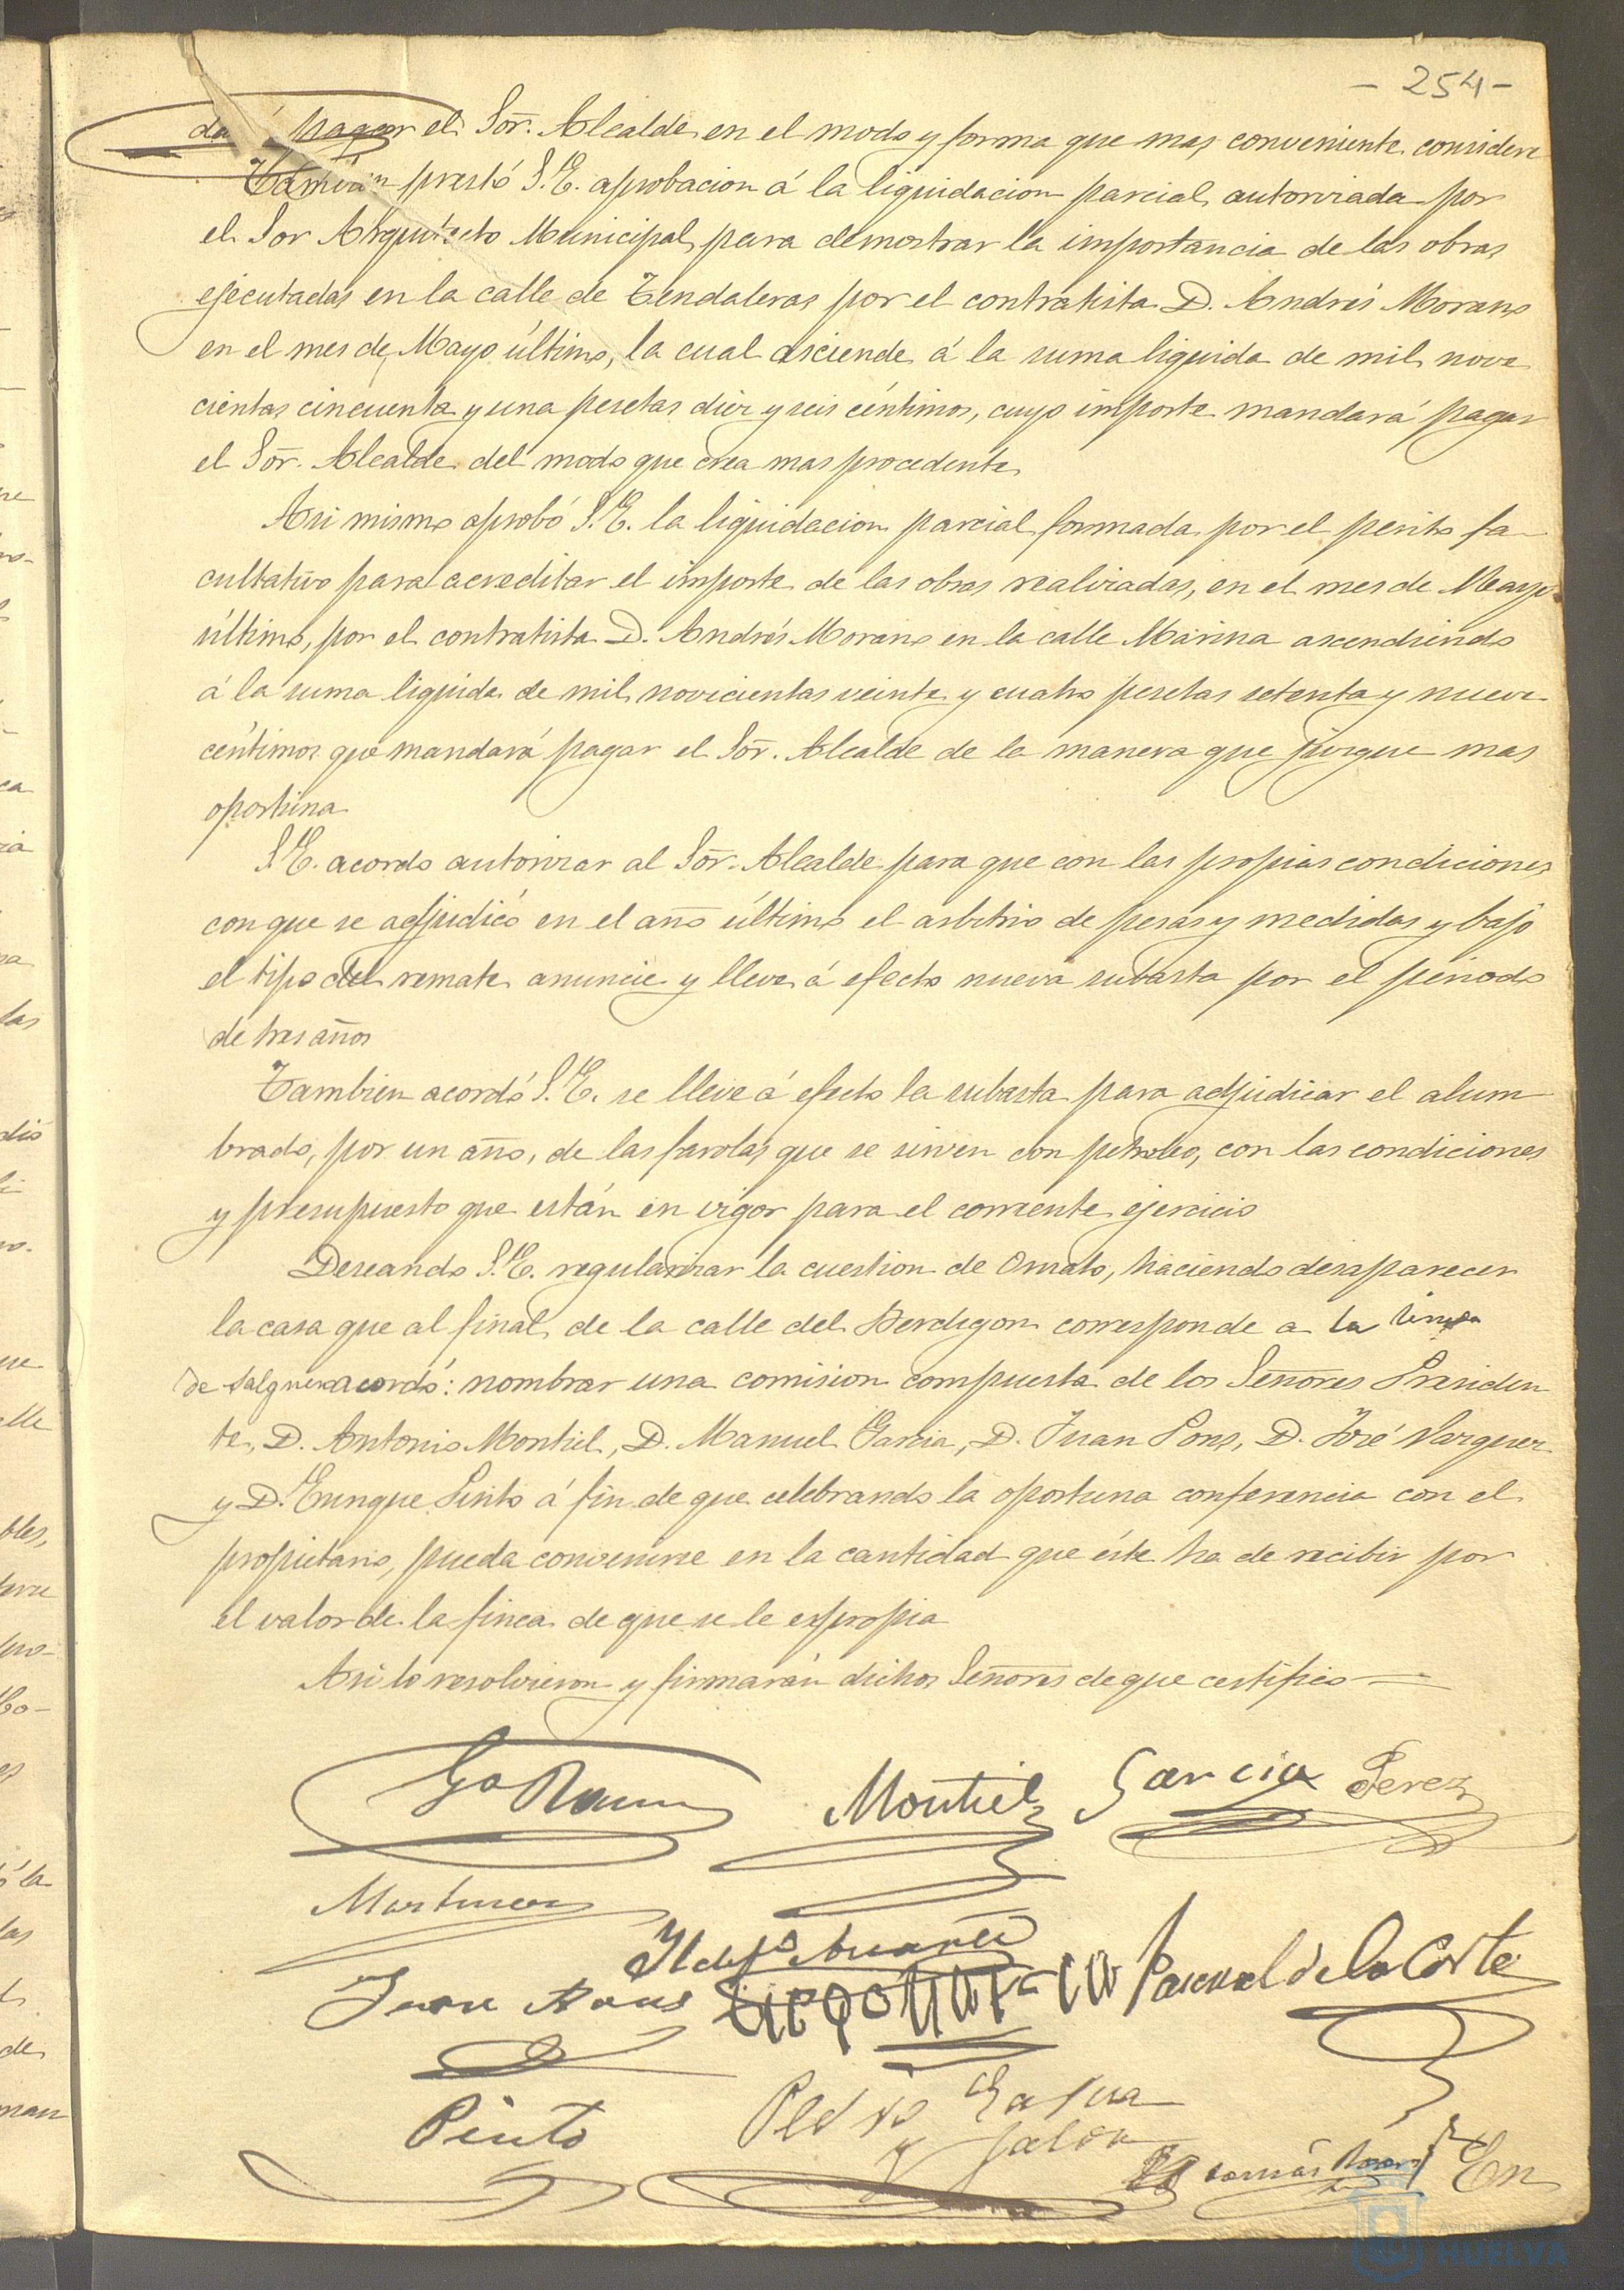 - 254 -
dará pagar el Sor. Alcalde en el modo y forma que mas conveniente considere
Tambien prestó S.E. aprobacion á la liquidacion parcial autorizada por
el Sor Arquitecto Municipal para demostrar la importancia de las obras
ejecutadas en la calle de Tendaleras por el contratista D. Andrés Morano
en el mes de Mayo último, la cual asciende á la suma liquida de mil nove
cientas cincuenta y una pesetas diez y seis céntimos, cuyo importe mandará pagar
el Sor. Alcalde del modo que crea mas procedente
Asi mismo aprobó S.E. la liquidacion parcial formada por el perito fa-
cultativo para acreditar el importe de las obras realizadas, en el mes de Mayo
último, por el contratista D. Andrés Morano en la calle Marina ascendiendo
á la suma liquida de mil novecientas veinte y cuatro pesetas setenta y nueve
céntimos que mandará pagar el Sor. Alcalde de la manera que juzgue mas
oportuna
S.E. acordo autorizar al Sor. Alcalde para que con las propias condiciones
con que se adjudicó en el año último el arbitrio de pesas y medidas y bajo
el tipo del remate anuncie y lleve á efecto nueva subasta por el periodo
de tres años
Tambien acordó S.E. se lleve á efecto la subasta para adjudicar el alum
brado, por un año, de las farolas que se sirven con petroleo, con las condiciones
y presupuesto que están en vigor para el corriente ejercicio
Deseando S.E. regularizar la cuestion de Ornato, haciendo desaparecer
la casa que al final de la calle del Berdigon corresponde a la
de Salguera acordó: nombrar una comision compuesta de los Señores Presiden
te, D. Antonio Montiel, D. Manuel Garcia, D. Juan Pons, D. José Vazquez
y D. Enrique Pinto á fin de que celebrando la oportuna conferencia con el
propietario, pueda convenirse en la cantidad que éste ha de recibir por
el valor de la finca de que se le expropia
Asi lo resolvieron y firmarán dichos Señores de que certifico
Montiel Garcia Perez
Martinez
Ildefso
Juan Pascual de la Corte
Pinto Pedro
Tomás En
HUELVA